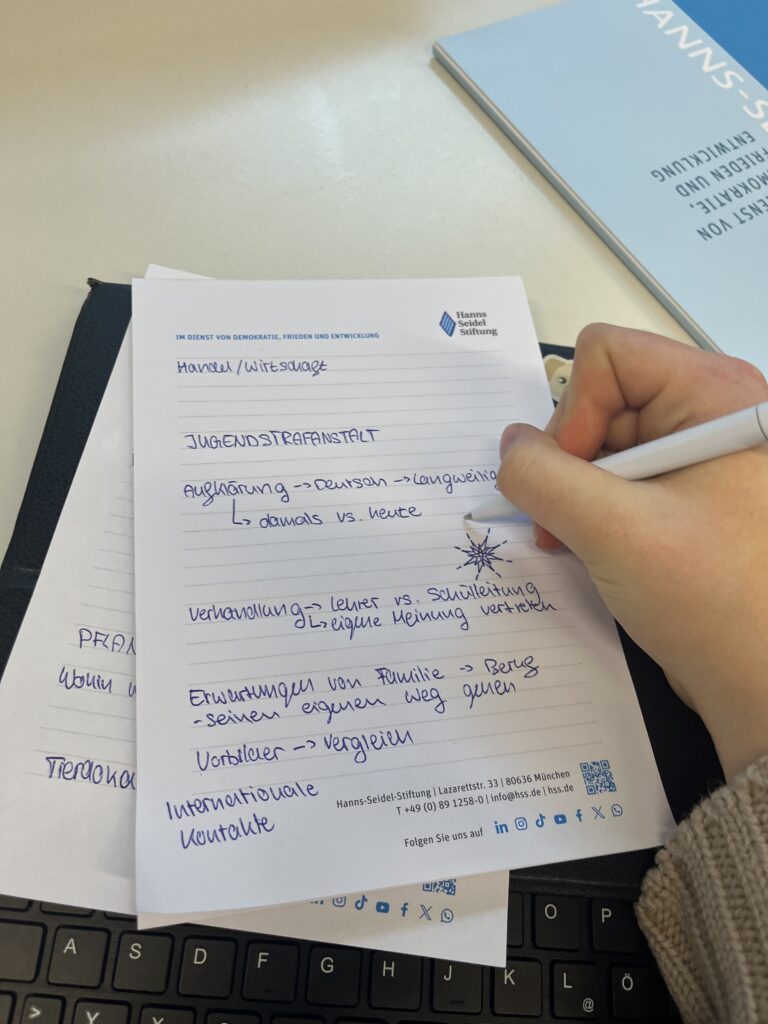 HANNS-SE
ENST VON
EMOKRATIE,
FRIEDEN UND
ENTWICKLUNG
IM DIENST VON DEMOKRATIE, FRIEDEN UND ENTWICKLUNG
Hanns
Seidel
Stiftung
Handel/Wirtschaft
JUGENDSTRAFANSTALT
Aufklärung → Deutsch → Langweilig
↳ damals vs. heute
Verhandlung → Lehrer vs. Schulleitung
↳ eigene Meinung vertreten
Erwartungen von Familie → Beruf
- seinen eigenen Weg gehen
Vorbilder → Vergleich
Internationale
Kontakte
Hanns-Seidel-Stiftung | Lazarettstr. 33 | 80636 München
T +49 (0) 89 1258-0 | info@hss.de | hss.de
Folgen Sie uns auf
PFLAN
Wohin
O P
A S D F G H J K L Ö
@
>